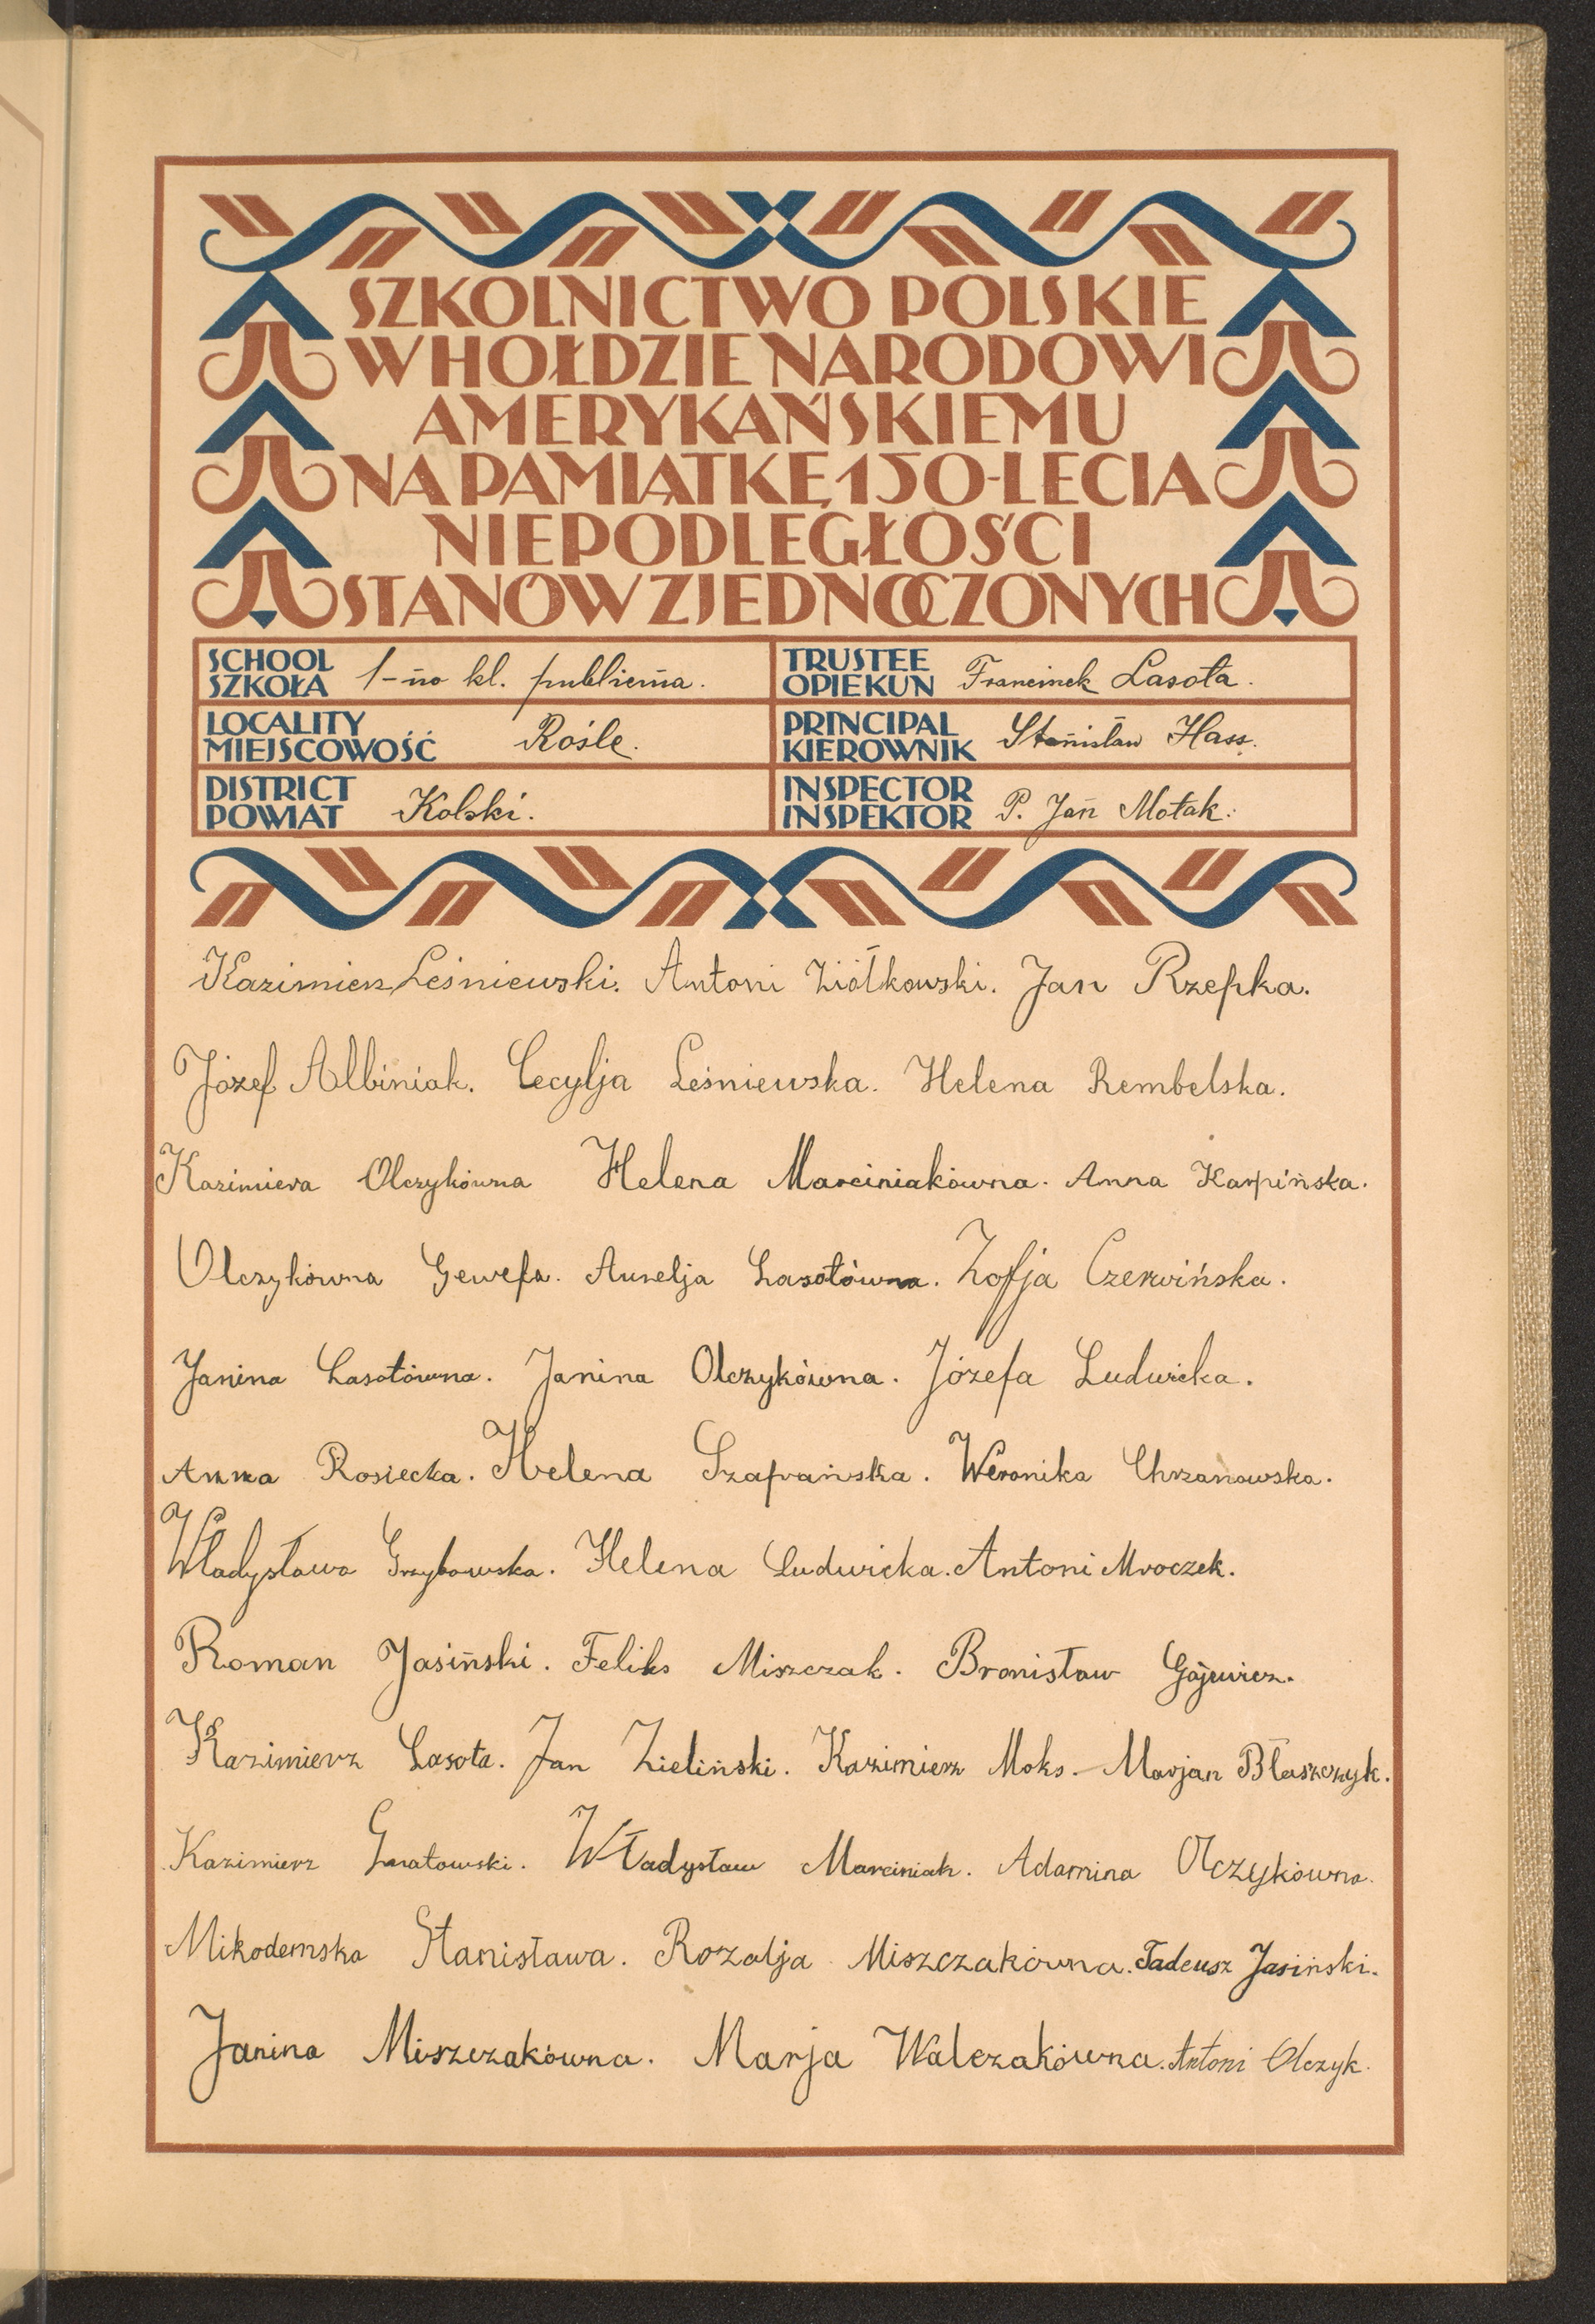 SZKOLNICTWO POLSKIE
W HOŁDZIE NARODOWI
AMERYKAŃSKIEMU
NA PAMIĄTKĘ 150-LECIA
NIEPODLEGŁOŚCI
STANÓW ZJEDNOCZONYCH
SCHOOL
SZKOŁA 1-no kl. publiczna.
TRUSTEE
OPIEKUN Franciszek Lasota.
LOCALITY
MIEJSCOWOŚĆ Rośle.
PRINCIPAL
KIEROWNIK Stanisław Hass.
DISTRICT
POWIAT Kolski.
INSPECTOR
INSPEKTOR P. Jan Motak.
Kazimierz Leśniewski. Antoni Ziółkowski. Jan Rzepka.
Józef Albiniak. Cecylja Leśniewska. Helena Rembelska.
Kazimiera Olczykówna Helena Marciniakówna. Anna Karpińska.
Olczykówna Gewefa. Aurelja Lasotówna. Zofja Czerwińska.
Janina Lasotówna. Janina Olczykówna. Józefa Ludwicka.
Anna Rosiecka. Helena Szafrańska. Weronika Chrzanowska.
Władysława Grzybowska. Helena Ludwicka. Antoni Mroczek.
Roman Jasiński. Feliks Miszczak. Bronisław Gajewicz.
Kazimierz Lasota. Jan Zieliński. Kazimierz Moks. Marjan Błaszczyk.
Kazimierz Gnatowski. Władysław Marciniak. Adamina Olczykówna.
Mikodemska Stanisława. Rozalja Miszczakówna. Tadeusz Jasiński.
Janina Miszczakówna. Marja Walczakówna. Antoni Olczyk.